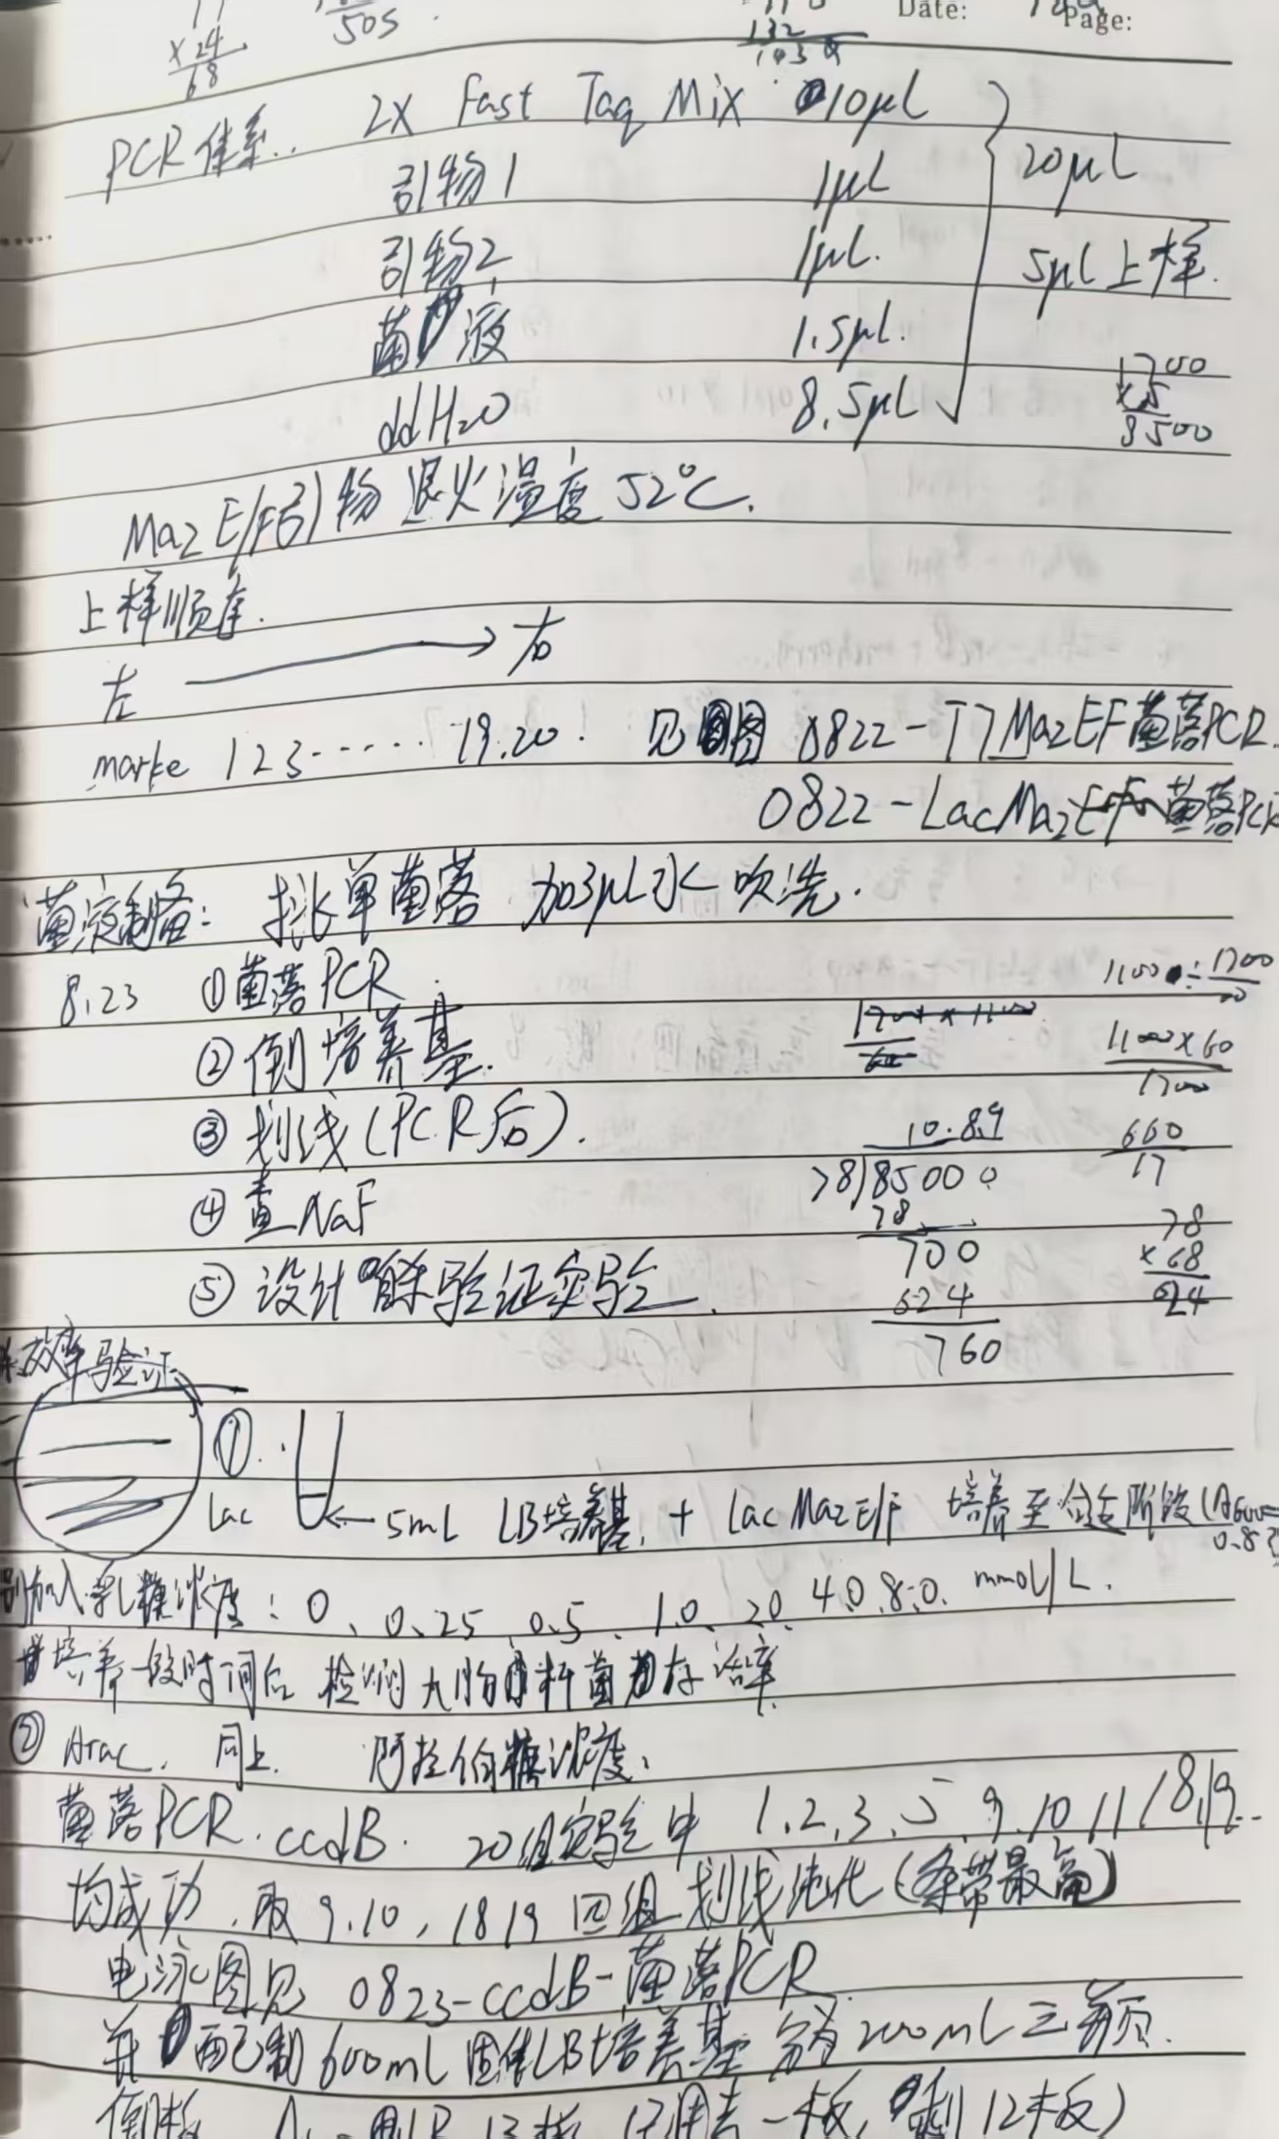 × 24
68
50S
Date: Page:
132
PCR体系.. 2X Fast Taq Mix 10μL
引物1 1μL 20μL
引物2 1μL. 5μL上样.
菌液 1.5μL.
1700
×5
8500
ddH2O 8.5μL
MazE/F引物 退火温度 52℃.
上样顺序.
左 → 右
marke 1 2 3 ...... 19.20. 见图 0822-T7MazEF菌落PCR.
0822-LacMazEF 菌落PCR
菌液制备: 挑单菌落 加3μL水吹洗.
8.23 ①菌落PCR
②倒培养基.
③划线(PCR后).
④查NaF
⑤设计自杀验证实验.
1100×60
1700
660
17
10.89
78)85000
78
700
624
760
78
×68
624
效率验证
① Lac ← 5mL LB培养基, + LacMazE/F 培养至合适阶段(A600=
0.8
别加入乳糖浓度: 0、0.25、0.5、1.0、2.0、4.0、8.0. mmol/L.
培养一段时间后 检测大肠杆菌存活率
② Arac. 同上. 阿拉伯糖浓度.
菌落PCR. ccdB. 20组实验中 1.2.3.5.9.10 11 18,19..
均成功,取 9.10, 18 19 四组 划线纯化(条带最高)
电泳图见 0823-ccdB-菌落PCR
并配制600mL固体LB培养基 分为200mL三瓶.
倒板 13板 (已用去一板, 剩12板)